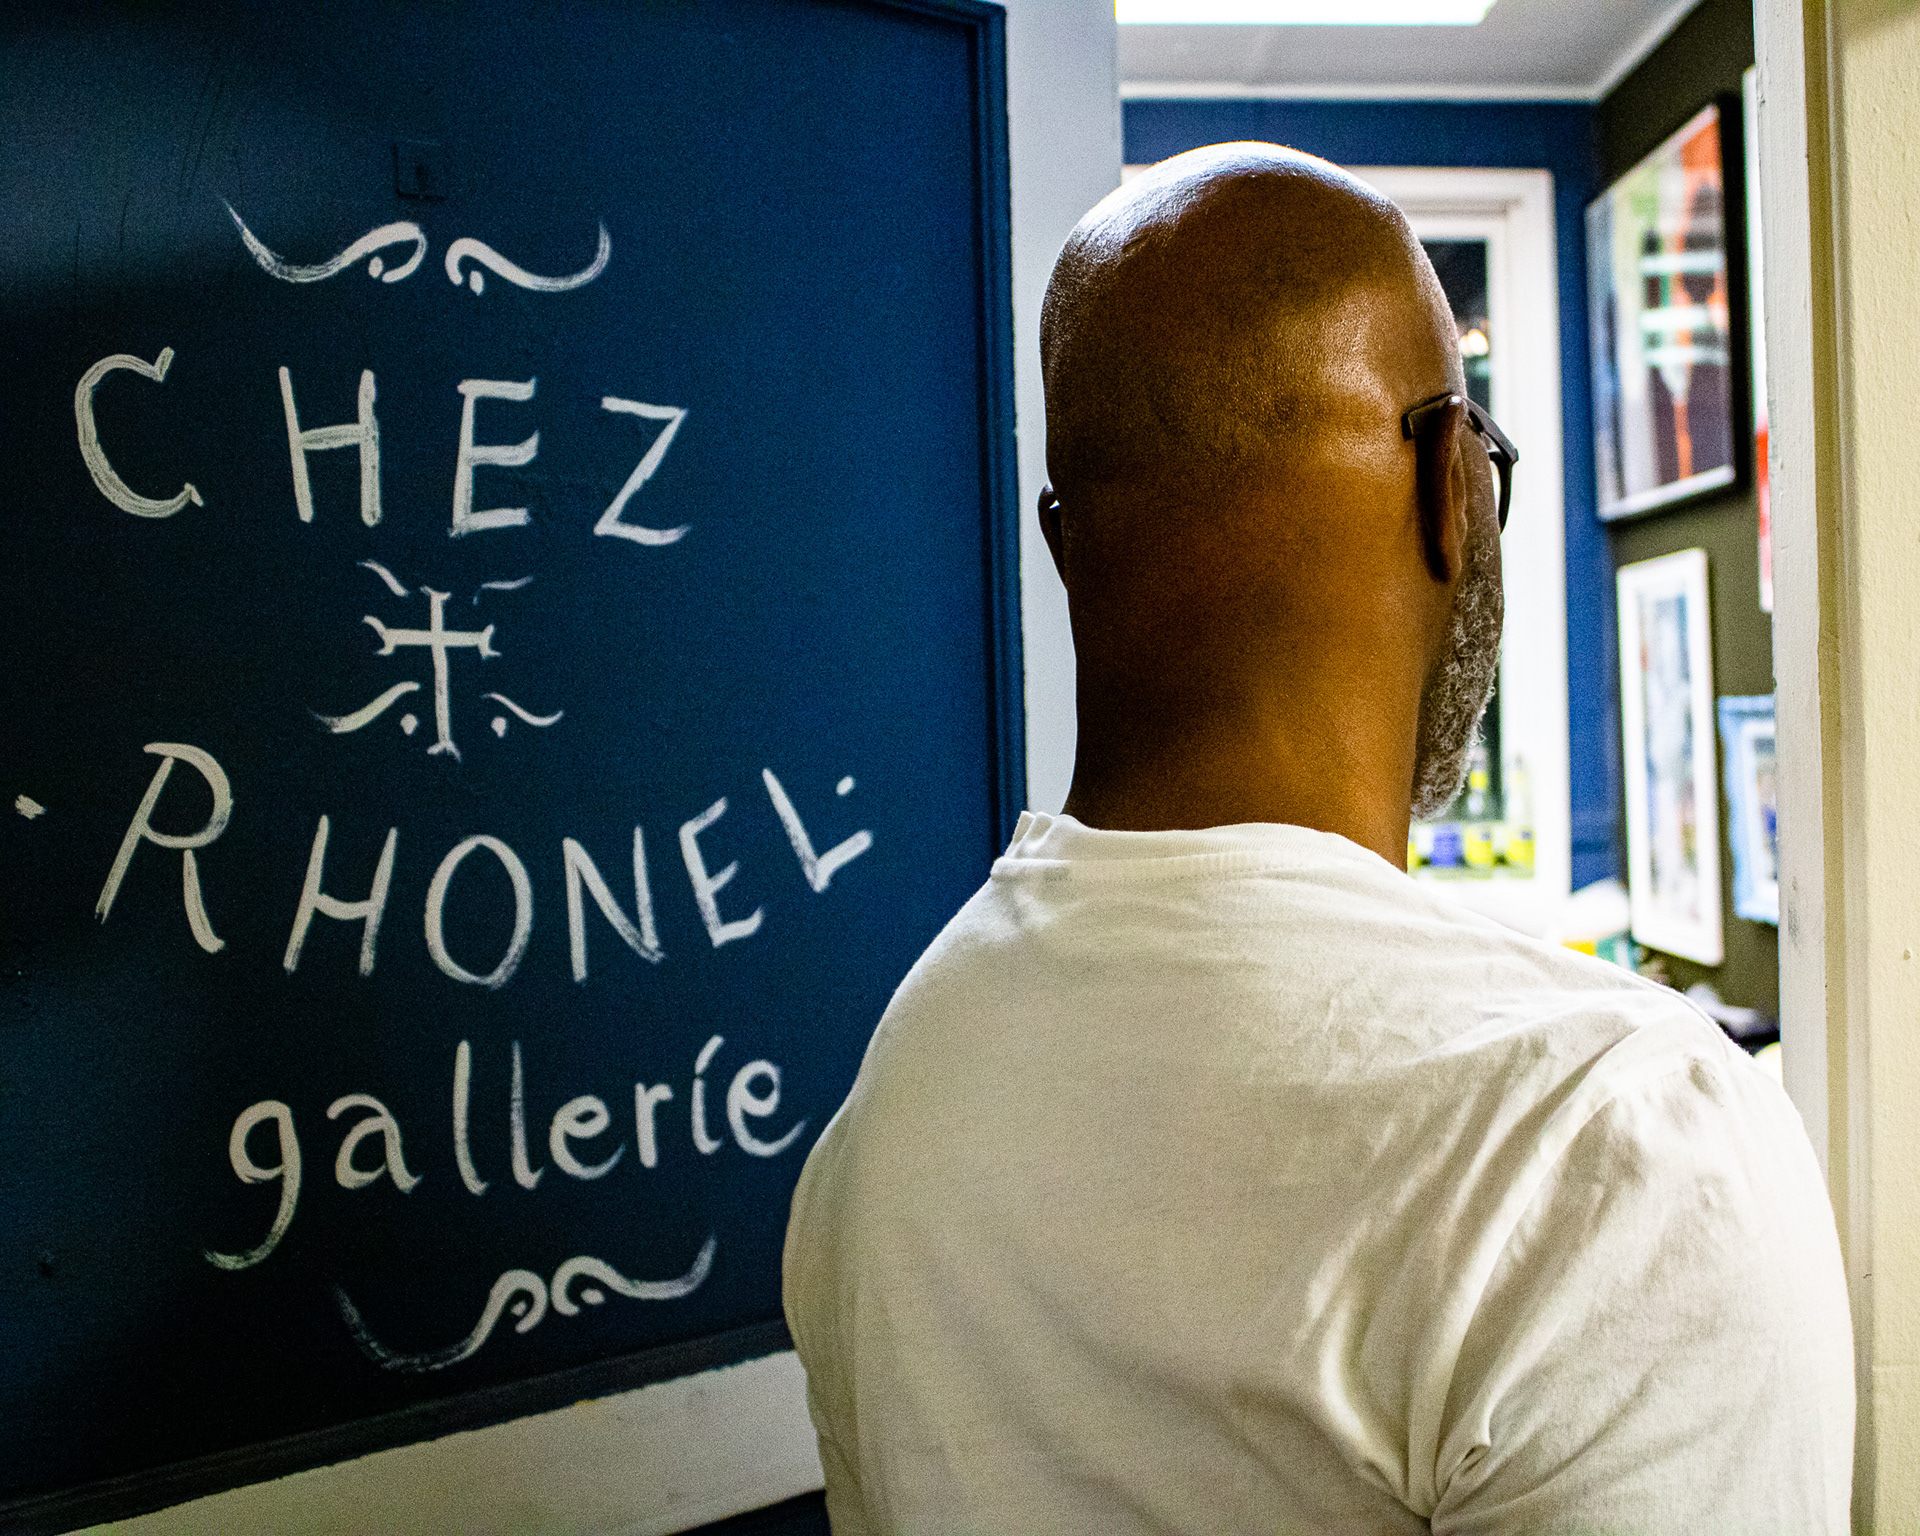 CHEZ
RHONEL
gallerie